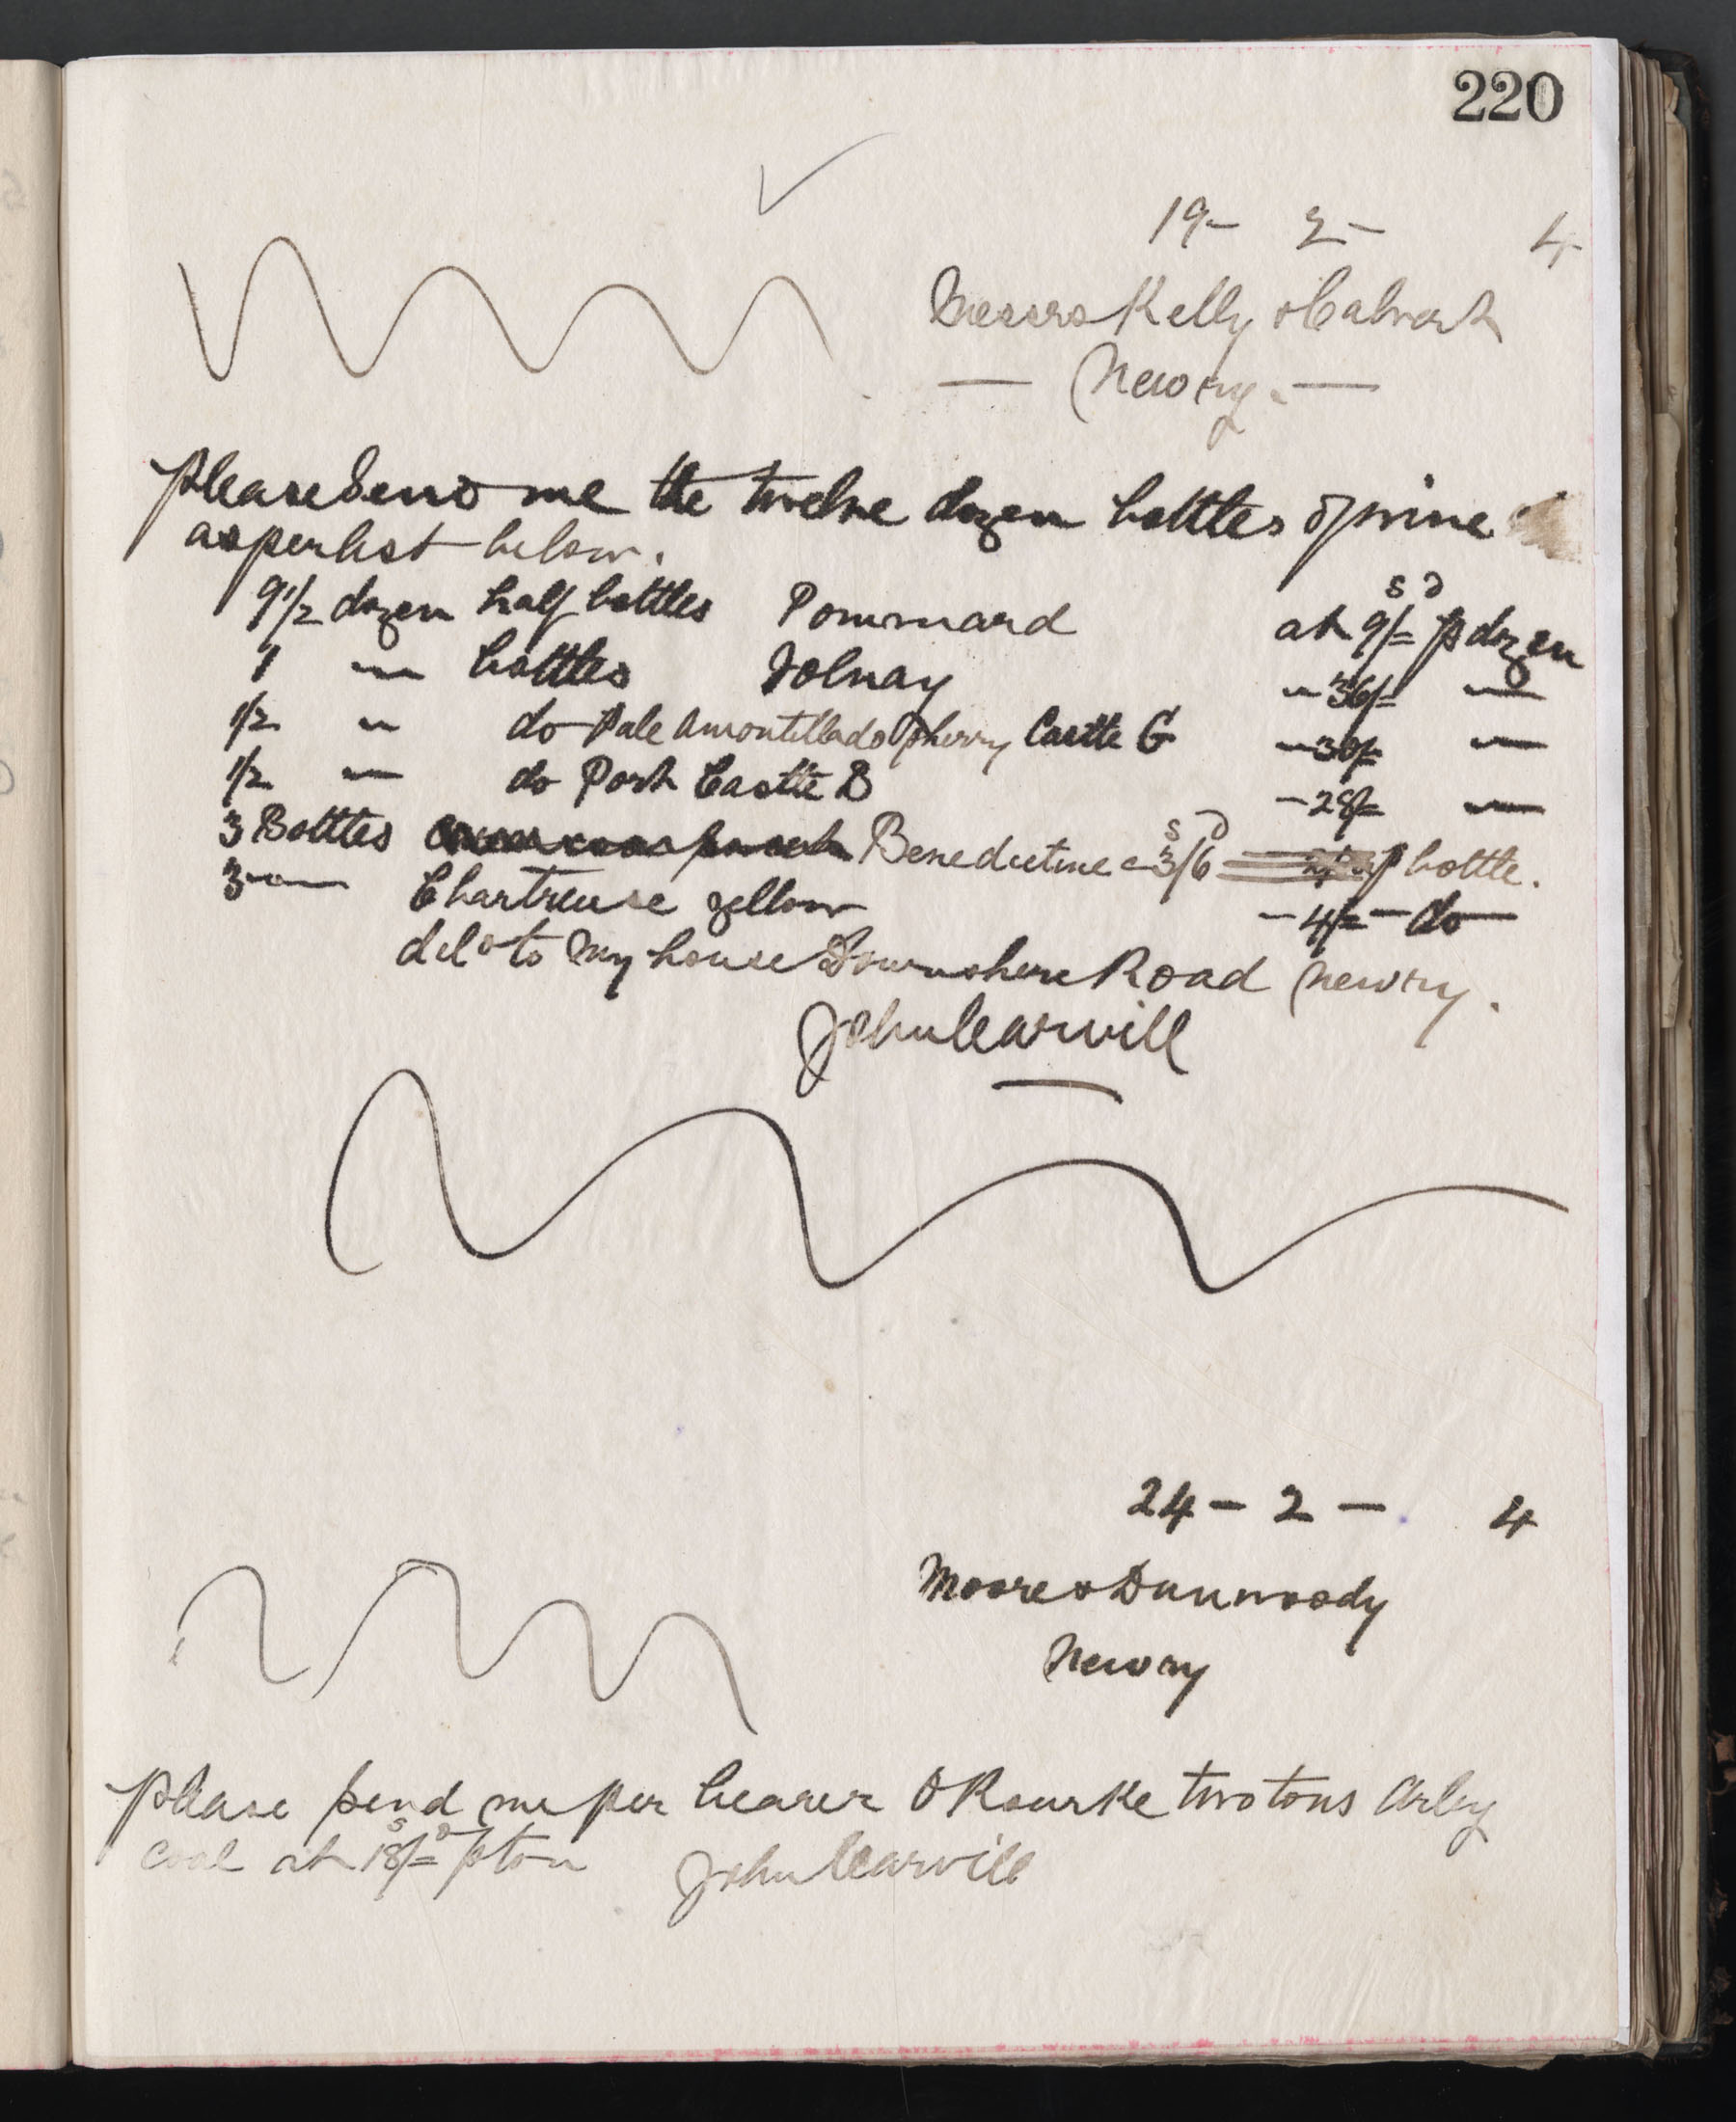 220
19- 2- 4
Messrs Kelly & Calvert
— Newry. —
Please Send me the twelve dozen bottles of wine
as per list below.
s d
9 1/2 dozen half bottles Pommard at 9/= p dozen
1 " bottles Volnay " 36/= "
1/2 " do Pale Amontillado Sherry Castle G " 30/= "
1/2 " do Port Castle B - 28/= "
s d
3 Bottles Benedictine @ 3/6 p bottle.
3 " Chartreuse yellow - 4/= - do
deld to my house Downshire Road Newry.
John Wearvill
24 - 2 - 4
Moore & Dunwoody
Newry
Please send me per bearer O Rourke two tons Arley
s d
coal at 18/= p ton John Wearvill